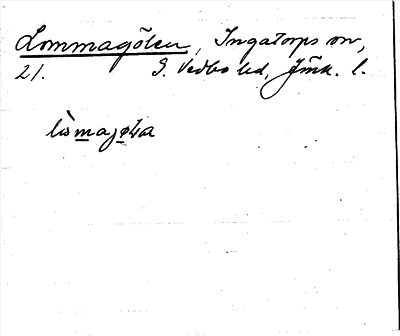 Lommagölen, Ingatorps sn,
21. S. Vedbo hd, Jönk. l.
lòmajøka